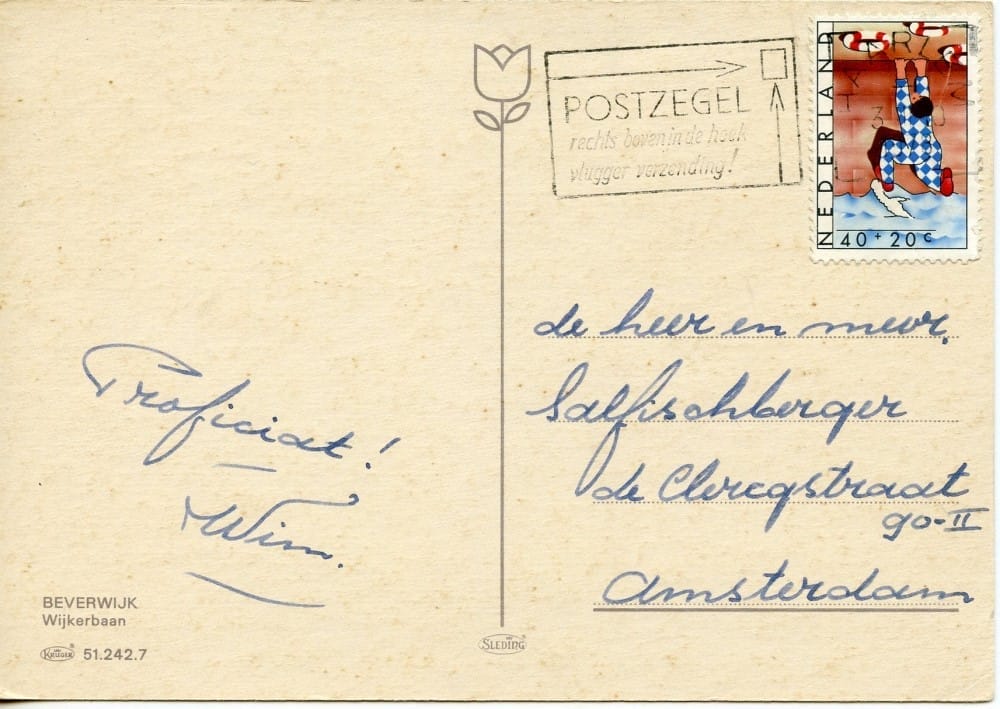 POSTZEGEL
rechts boven in de hoek
vlugger verzending!
NEDERLAND
40 + 20 c
Proficiat!
Wim.
de heer en mevr.
Salfischberger
de Clercqstraat
90-II
Amsterdam
BEVERWIJK
Wijkerbaan
KRÜGER 51.242.7
SLEDING